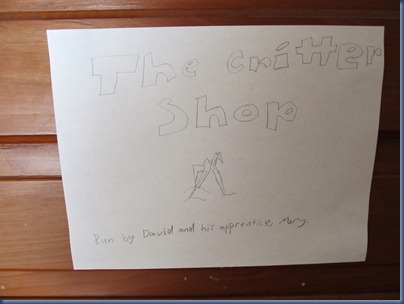 The Critter
Shop
Run by David and his apprentice, Mary.